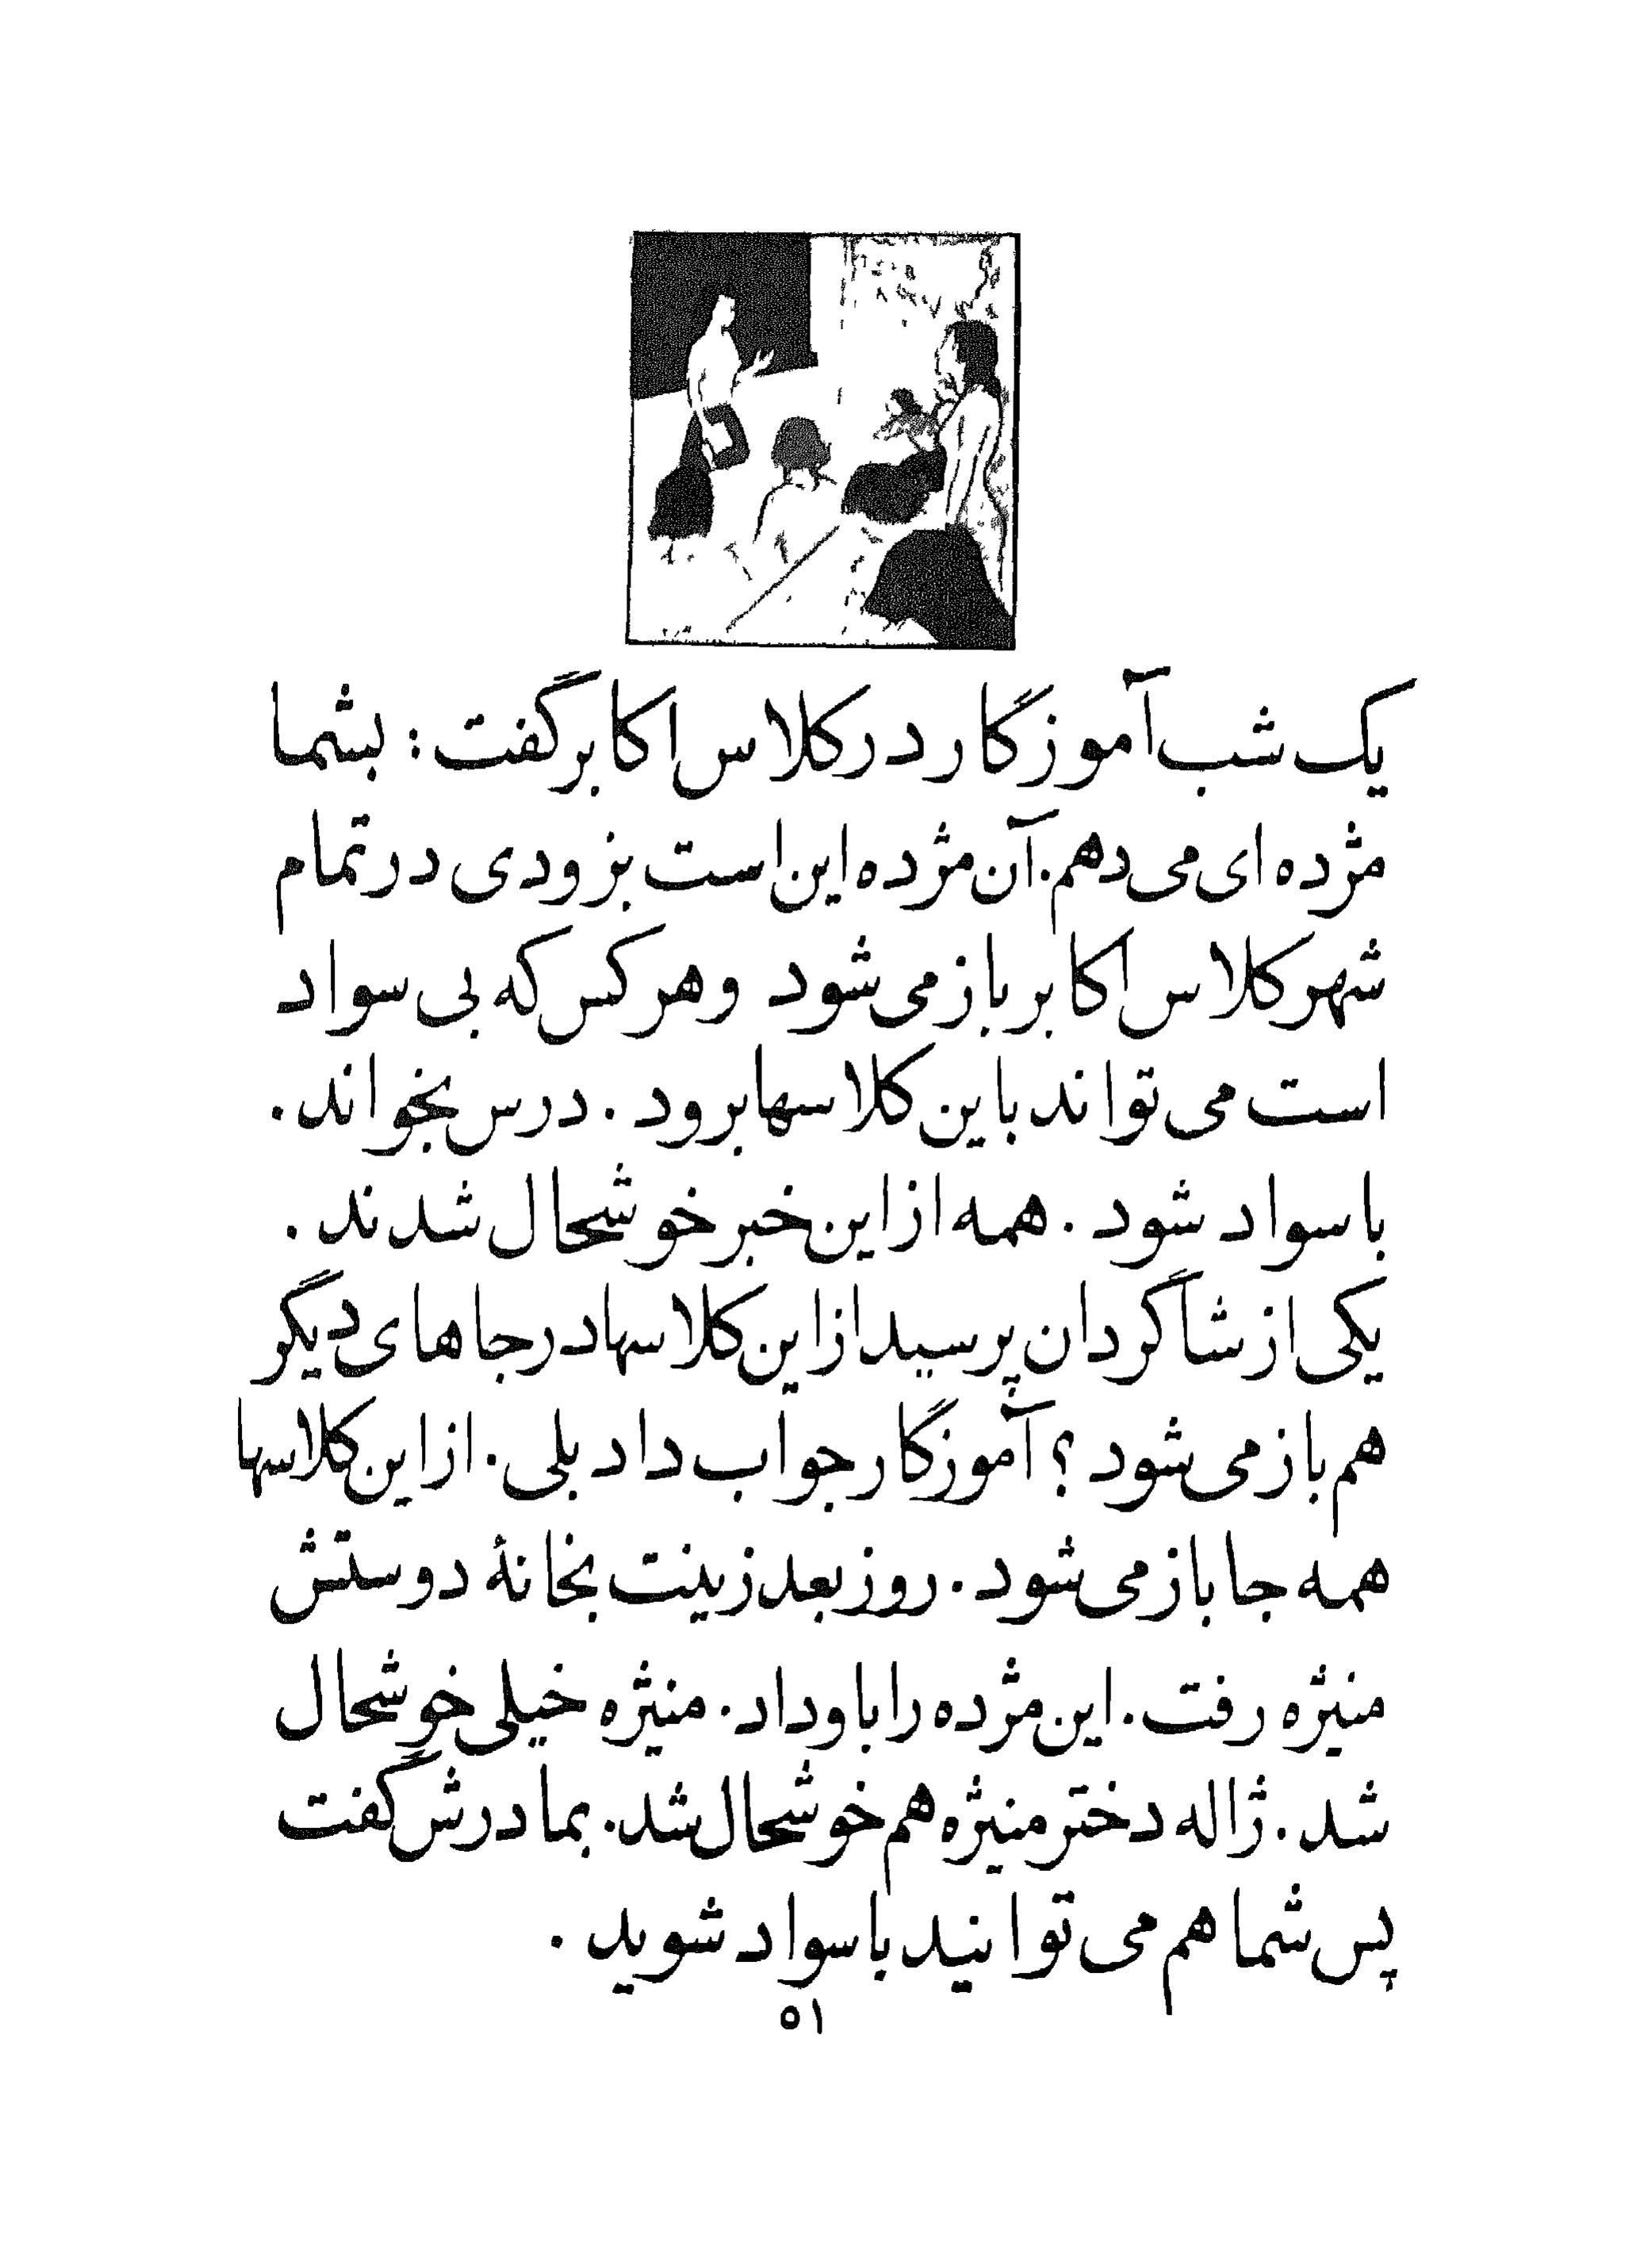 یک شب آموزگار در کلاس اکابر گفت : بشما
مژده ای می دهم. آن مژده این است بزودی در تمام
شهر کلاس اکابر باز می شود و هر کس که بی سواد
است می تواند باین کلاسها برود . درس بخواند .
باسواد شود . همه از این خبر خوشحال شدند .
یکی از شاگردان پرسید از این کلاسها در جاهای دیگر
هم باز می شود ؟ آموزگار جواب داد بلی . از این کلاسها
همه جا باز می شود . روز بعد زینت بخانهٔ دوستش
منیژه رفت . این مژده را باو داد . منیژه خیلی خوشحال
شد . ژاله دختر منیژه هم خوشحال شد . بمادرش گفت
پس شما هم می توانید باسواد شوید .
۵۱